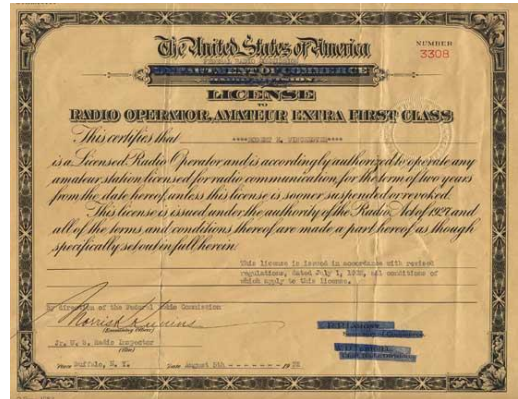 The United States of America
NUMBER
3308
FEDERAL RADIO COMMISSION
DEPARTMENT OF COMMERCE
LICENSE
TO
RADIO OPERATOR, AMATEUR EXTRA FIRST CLASS
This certifies that ****ROBERT M. WINCHESTER****
is a Licensed Radio Operator and is accordingly authorized to operate any
amateur station licensed for radio communication, for the term of two years
from the date hereof, unless this license is sooner suspended or revoked.
This license is issued under the authority of the Radio Act of 1927 and
all of the terms and conditions thereof are made a part hereof as though
specifically set out in full herein.
This license is issued in accordance with revised
regulations, dated July 1, 1932, all conditions of
which apply to this license.
By direction of the Federal Radio Commission
(Examining Officer)
Jr. U. S. Radio Inspector
(Title)
Place Buffalo, N. Y. Date August 5th - - - - - - - 1932